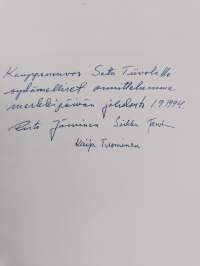 Kauppaneuvos Satu Tiivolalle
sydämelliset onnittelumme
merkkipäivän johdosta 1.9.1994.
Risto Jäminen Sirkka
Kaija Tuominen